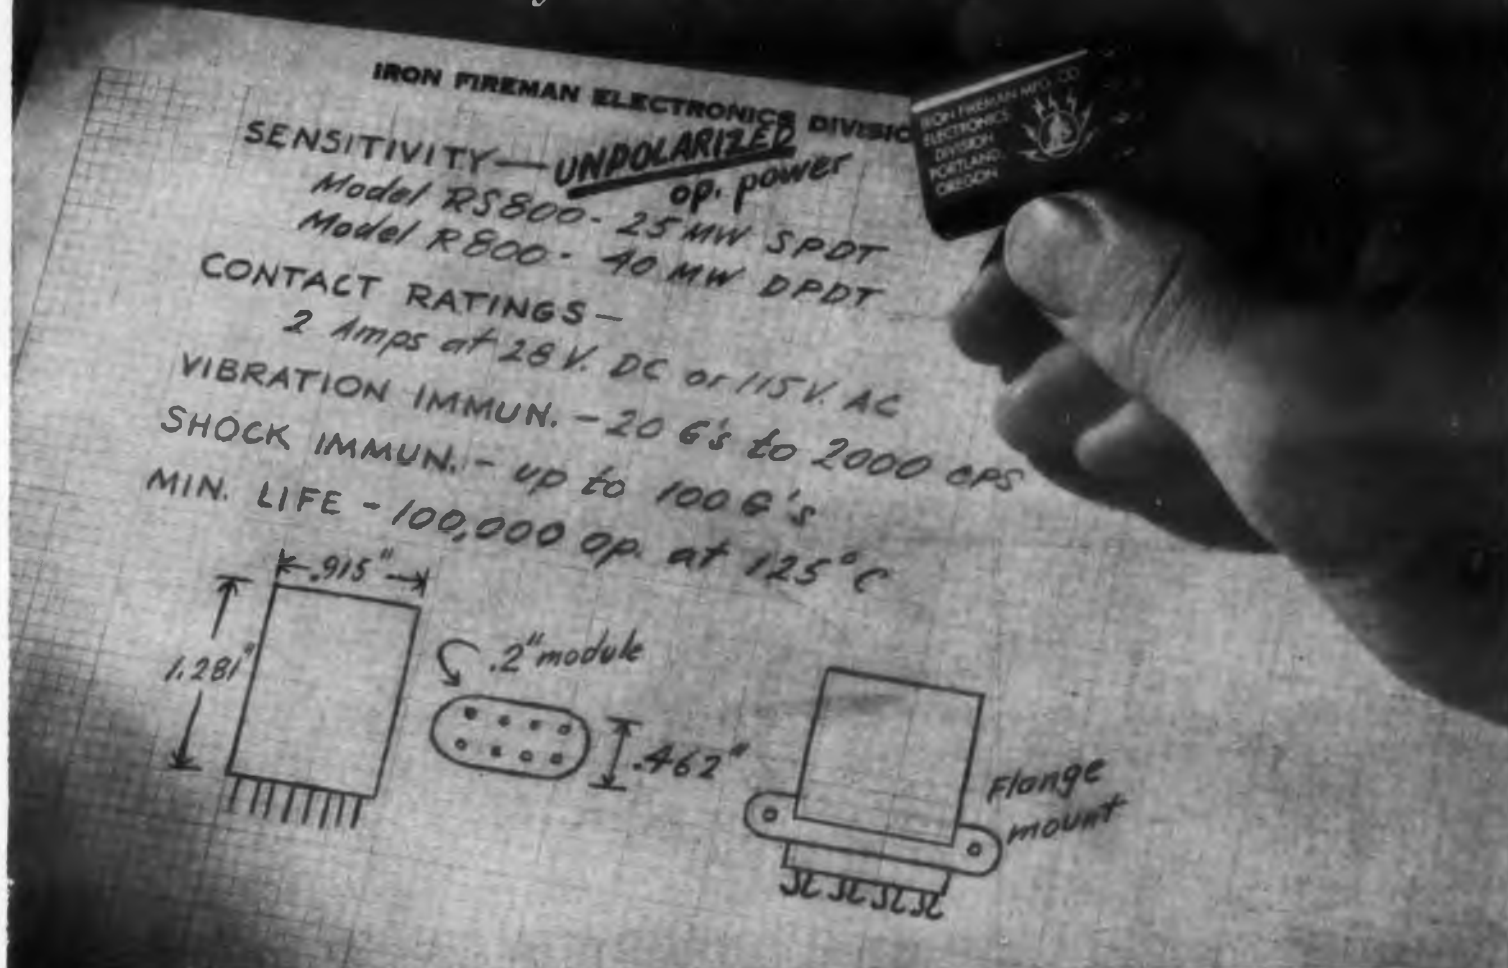 IRON FIREMAN ELECTRONICS
IRON FIREMAN MFG. CO.
ELECTRONICS
DIVISION
PORTLAND,
OREGON
SENSITIVITY — UNPOLARIZED
op. power
Model RS800 - 25 MW SPDT
Model R800 - 40 MW DPDT
CONTACT RATINGS —
2 Amps at 28 V. DC or 115 V. AC
VIBRATION IMMUN. - 20 G's to 2000 CPS
SHOCK IMMUN. - up to 100 G's
MIN. LIFE - 100,000 op. at 125°C
.915"
1.281"
.2" module
.462"
Flange
mount